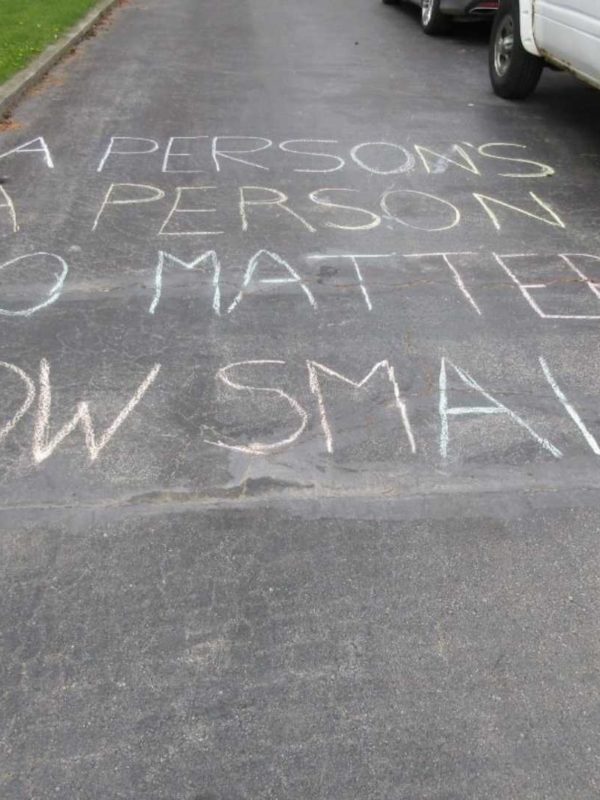 A PERSON'S
A PERSON
O MATTER
OW SMAL